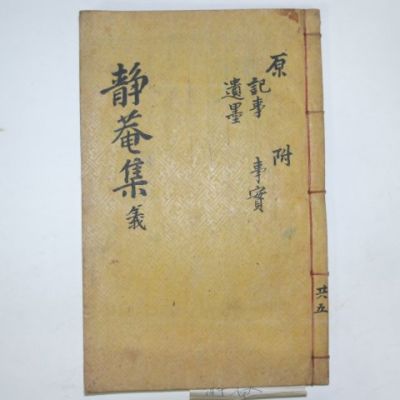 靜菴集 義
原 附
記事 事實
遺墨
共五